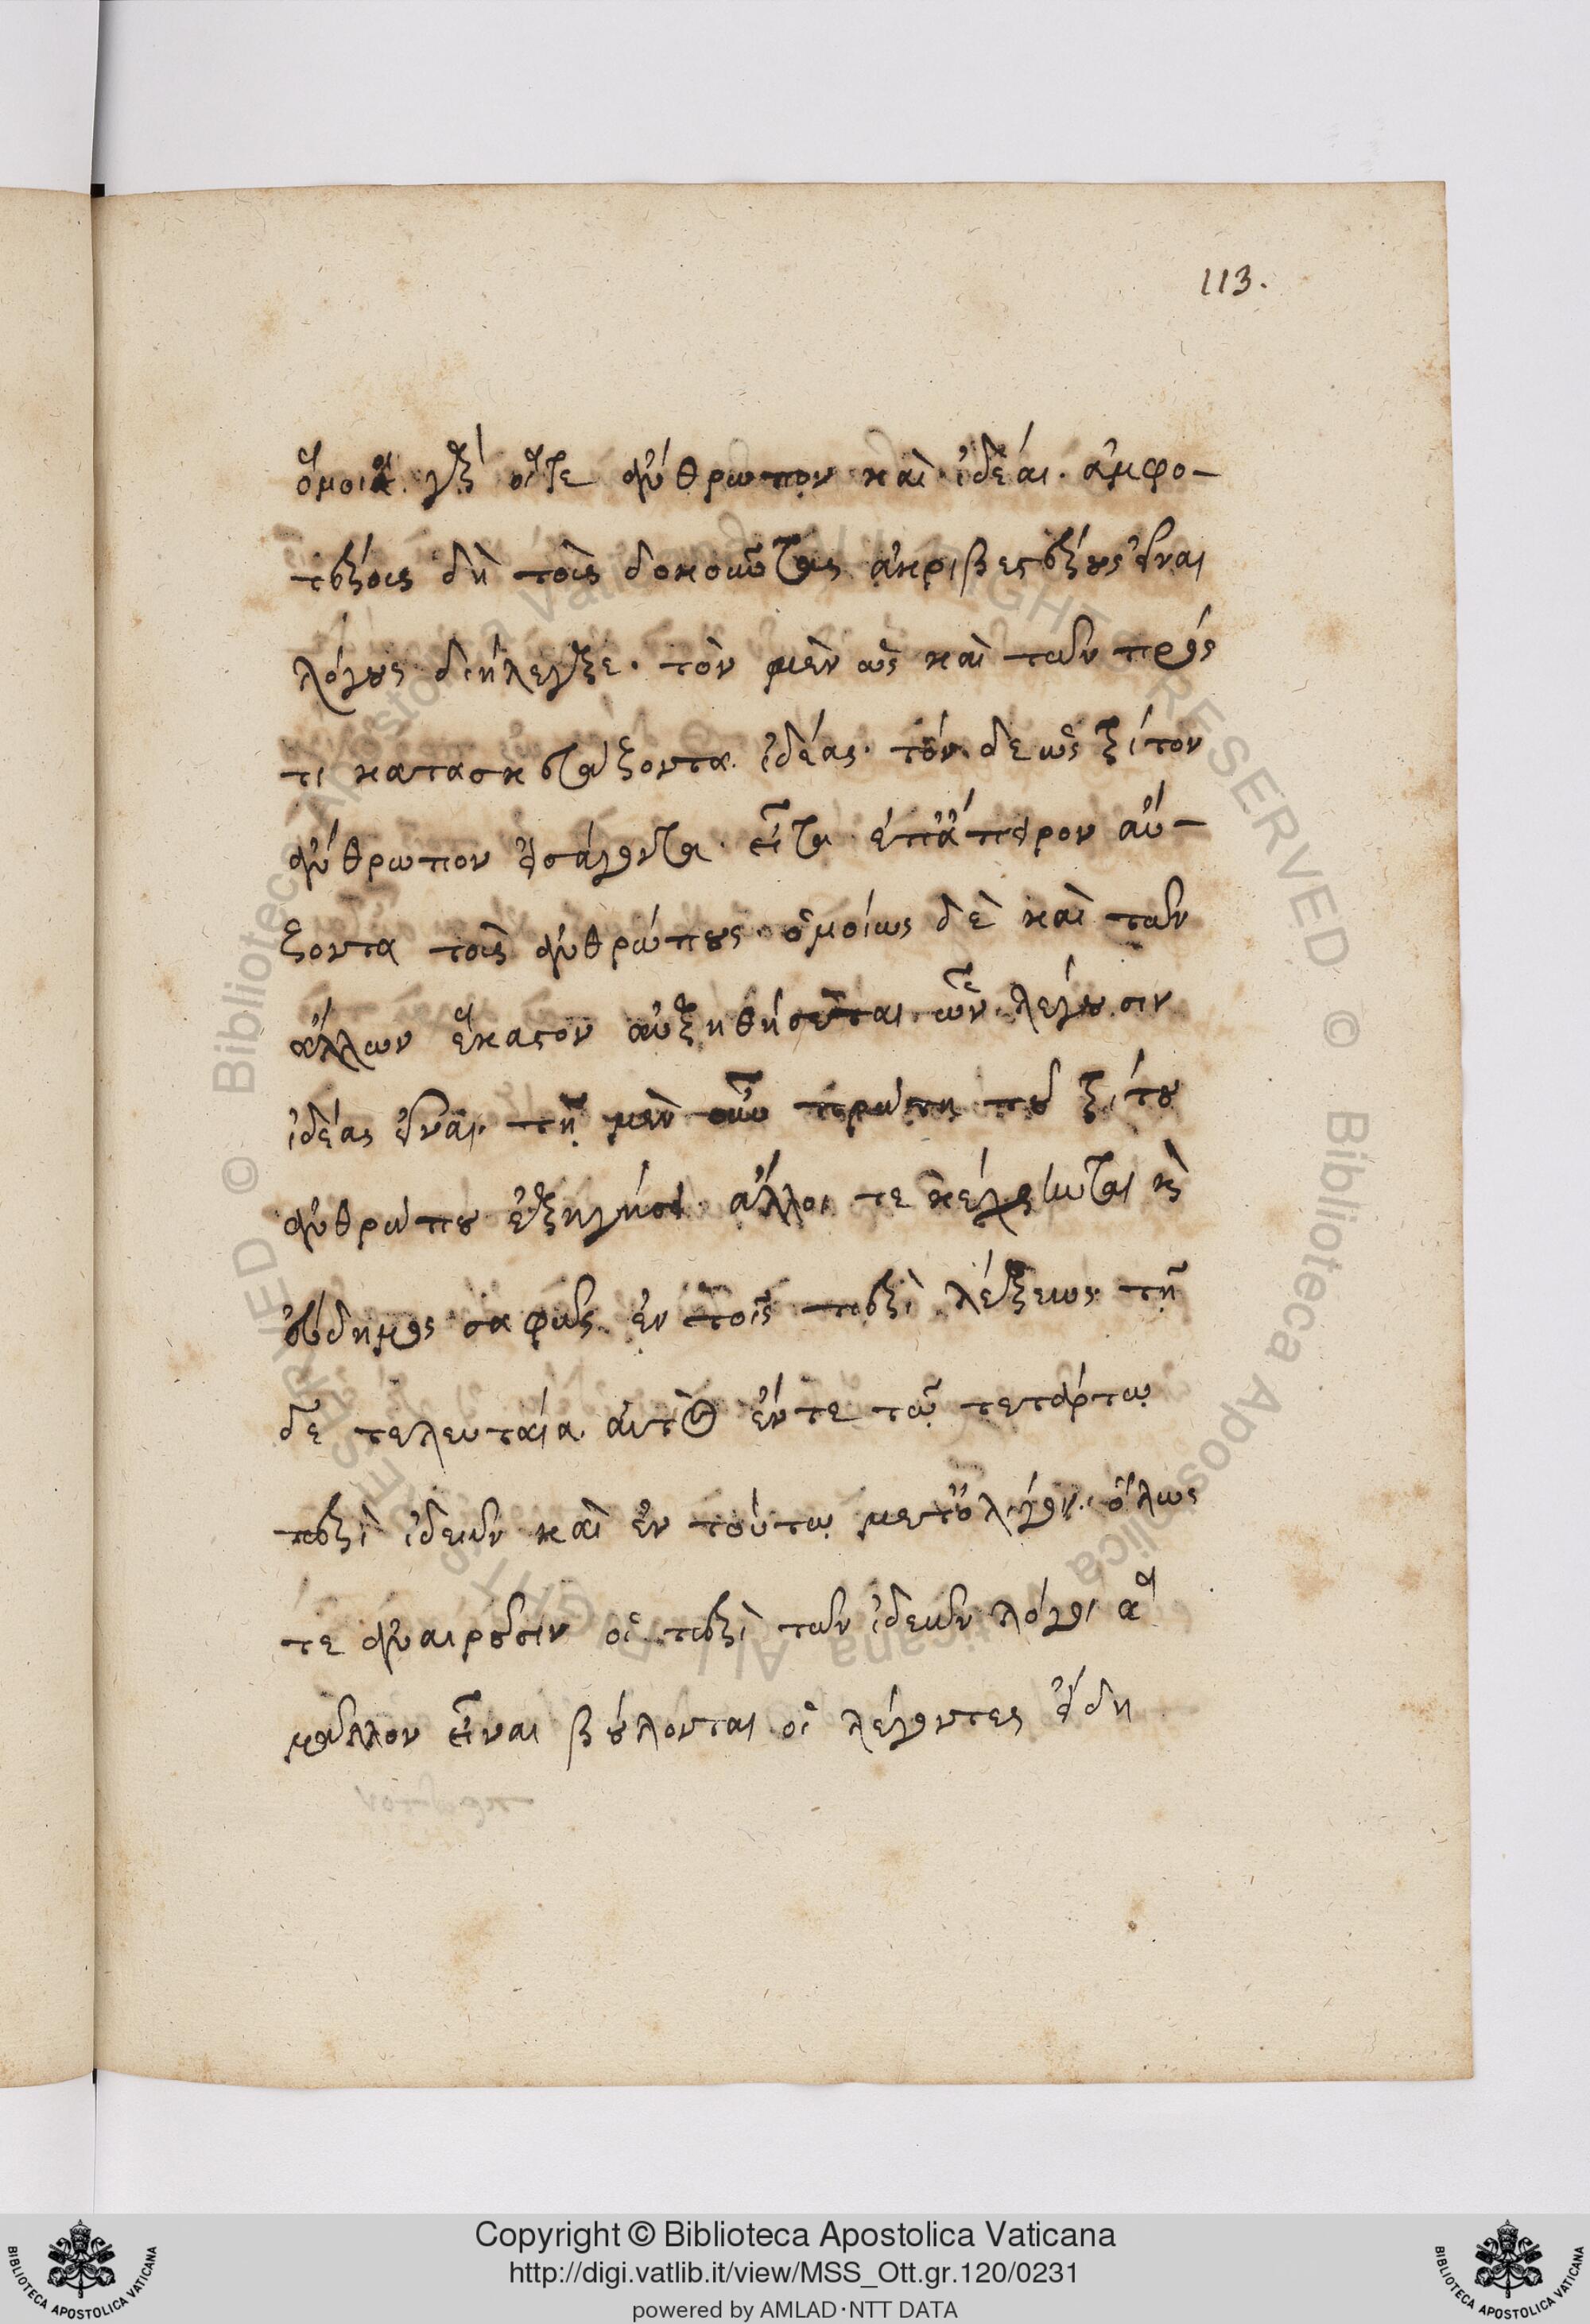 113.
ὅμοια γὰρ οἵτε ἄνθρωποι καὶ ἰδέαι. ἀμφο-
τέροις δὴ τοὺς δοκοῦντας ἀκριβεστέρους εἶναι
λόγους διήλεγξε. τὸν μὲν ὡς καὶ τῶν πρός
τι κατασκευάζοντα ἰδέας. τὸν δὲ ὡς τρίτον
ἄνθρωπον εἰσάγοντα. εἶτα ἐπ' ἄπειρον αὔ-
ξοντα τοὺς ἀνθρώπους. ὁμοίως δὲ καὶ τῶν
ἄλλων ἕκαστον αὐξηθήσεται ὧν λέγουσιν
ἰδέας εἶναι. τῇ μὲν οὖν πρώτῃ τοῦ τρίτου
ἀνθρώπου ἐξηγήσει ἄλλοι τε κέχρηνται καὶ
εὔδημος σαφῶς ἐν τοῖς περὶ λέξεως τῇ
δὲ τελευταία αὐτὸς ἔν τε τῷ τετάρτῳ
περὶ ἰδεῶν καὶ ἐν τούτῳ μετ' ὀλίγον. ὅλως
τε ἀναιροῦσιν οἱ περὶ τῶν ἰδεῶν λόγοι ἃ
μᾶλλον εἶναι βούλονται οἱ λέγοντες εἴδη
Copyright © Biblioteca Apostolica Vaticana
http://digi.vatlib.it/view/MSS_Ott.gr.120/0231
powered by AMLAD·NTT DATA
BIBLIOTECA APOSTOLICA VATICANA
BIBLIOTECA APOSTOLICA VATICANA